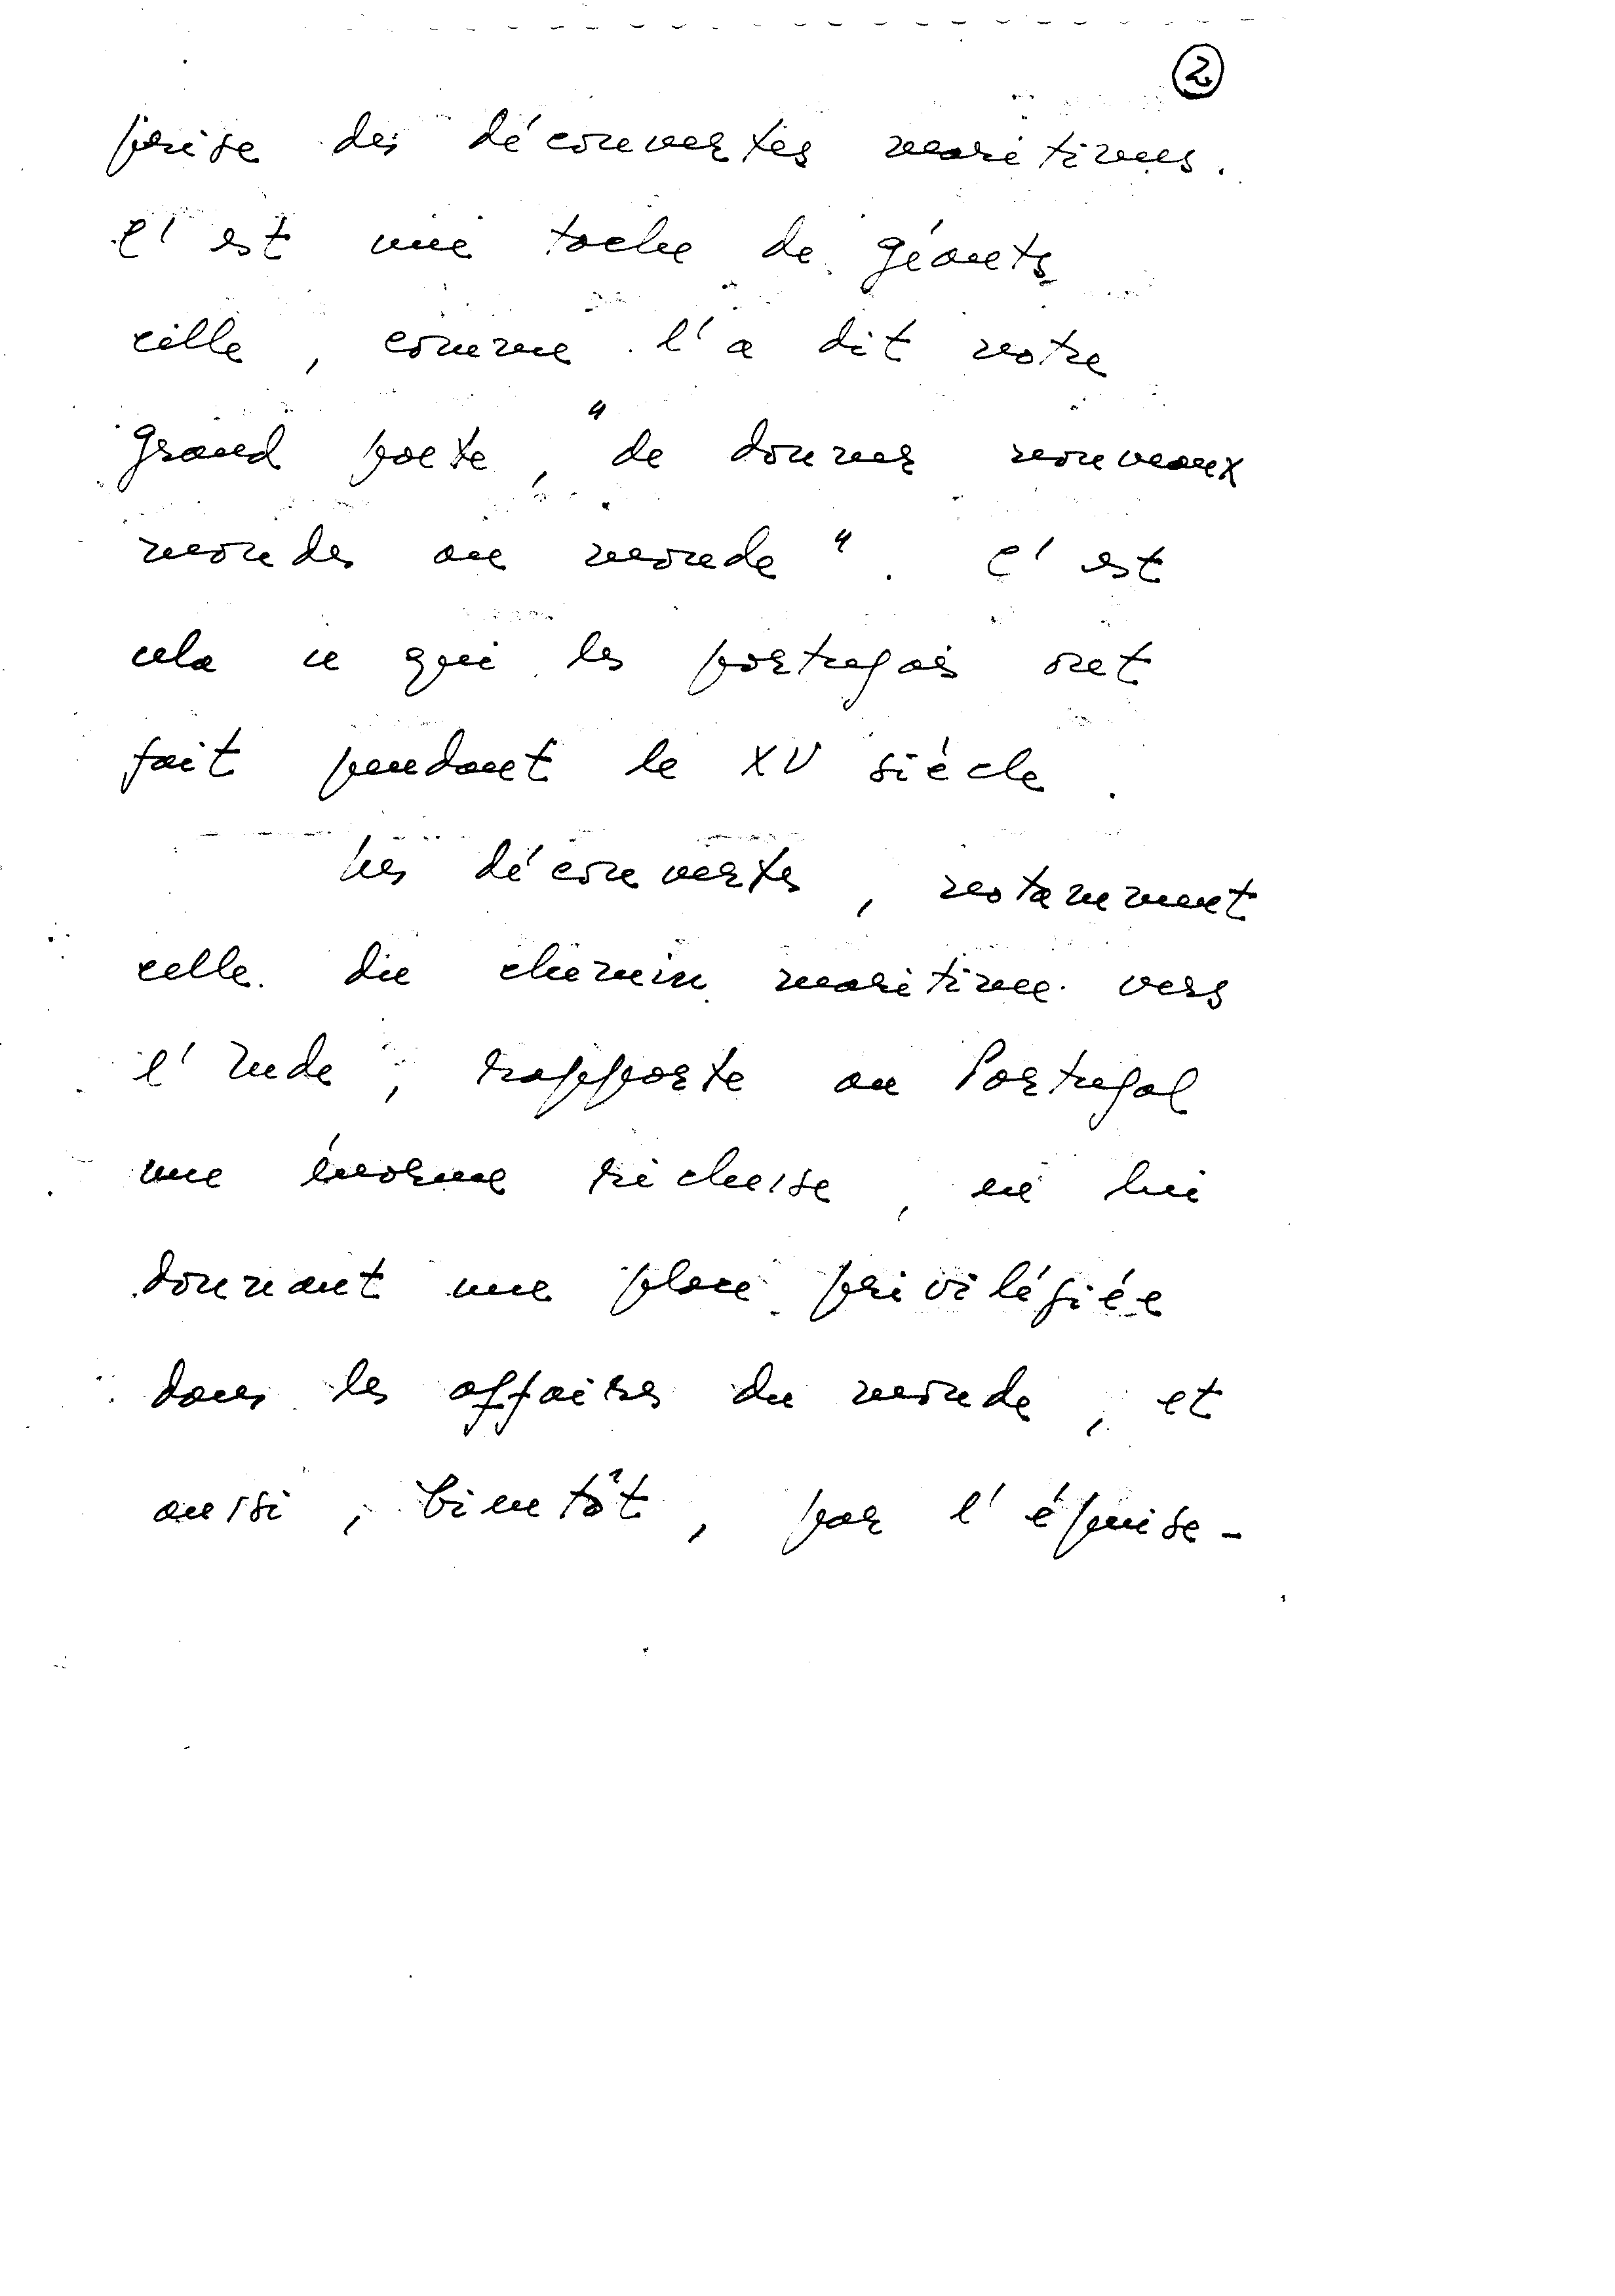 2
prise des découvertes maritimes.
C'est une tache de géants
celle, comme l'a dit notre
grand poete, "de donner nouveaux
mondes au monde". C'est
cela ce qui les portugais ont
fait pendant le XV siécle.
Les découvertes, notamment
celle du chemin maritime vers
l'Inde, rapporte au Portugal
une énorme richesse, en lui
donnant une place privilégiée
dans les affaires du monde, et
aussi, bientôt, par l'épuise-